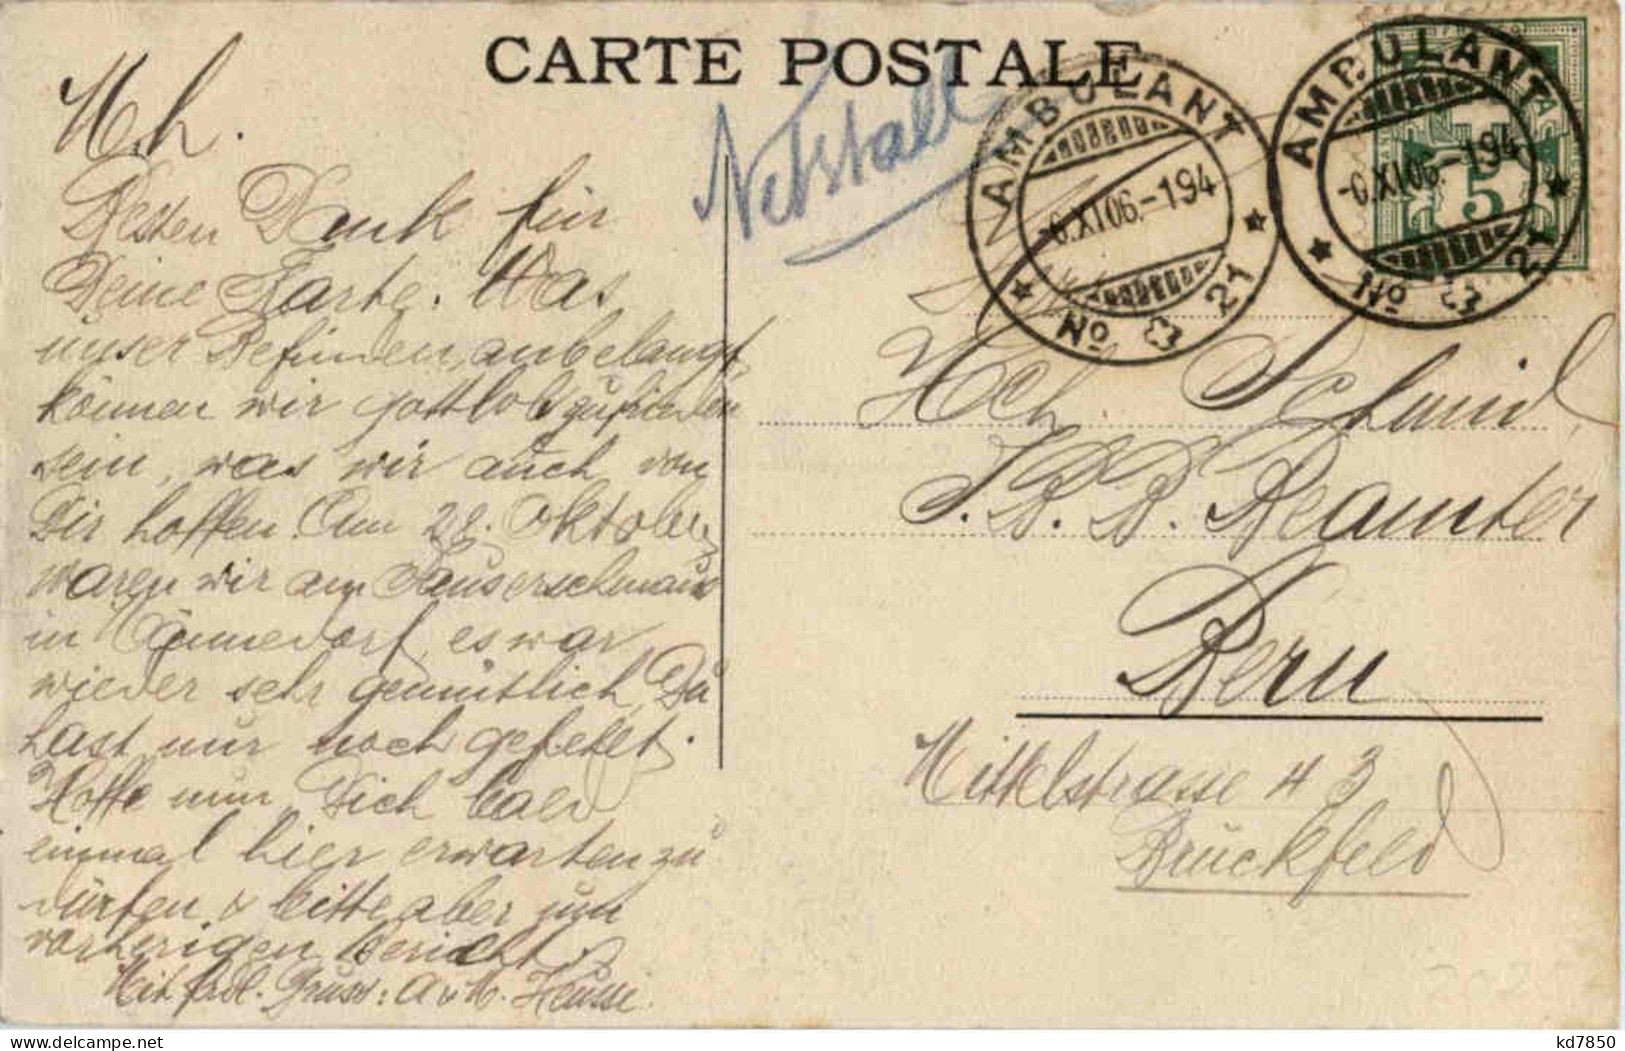 CARTE POSTALE
Netstall
AMBULANT
-6.XI.06.-194
No 21
AMBULANT
-6.XI.06.-194
No 21
5
M. h.
Besten Dank für
Deine Karte. Was
unser Befinden, anbelangt,
können wir gottlob zufrieden
sein, was wir auch von
Dir hoffen. Am 28. Oktober
waren wir am Sauserschmaus
in Männedorf, es war
wieder sehr gemütlich, Du
hast nur noch gefehlt.
Hoffe nun Dich bald
einmal hier erwarten zu
dürfen & bitte aber zum
vorherigen Bericht.
Mit frdl. Gruss: A & M. Heusse.
Hch. Schmid,
S. B. B. Beamter
Bern
Mittelstrasse 43
Brückfeld
kd7850